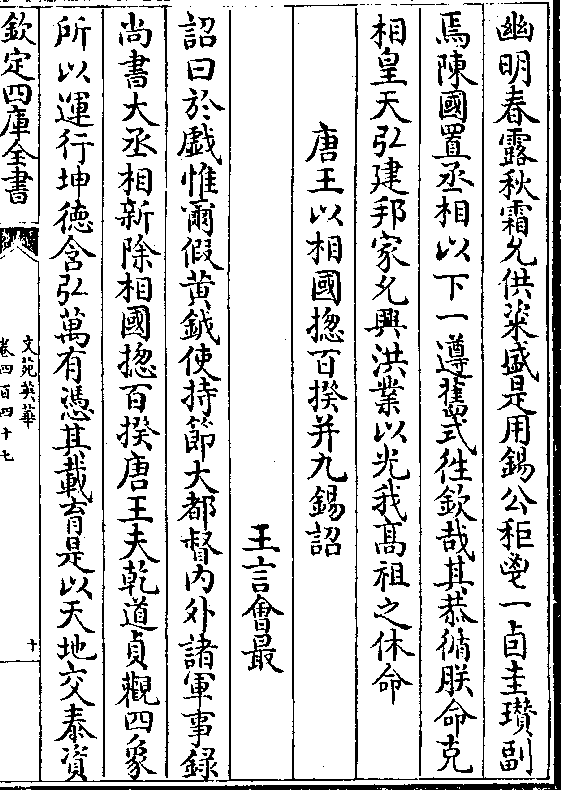 幽明春露秋霜允供粢盛是用錫公秬鬯一卣圭瓚副
焉陳國置丞相以下一遵舊式徃欽哉其恭循朕命克
相皇天弘建邦家允興洪業以光我髙祖之休命
唐王以相國揔百揆并九錫詔
王言會最
詔曰於戱惟爾假黄鉞使持節大都督内外諸軍事録
尚書大丞相新除相國揔百揆唐王夫乾道貞觀四象
所以運行坤德含弘萬有憑其載育是以天地交泰資
欽定四庫全書
文苑英華
卷四百四十七
十